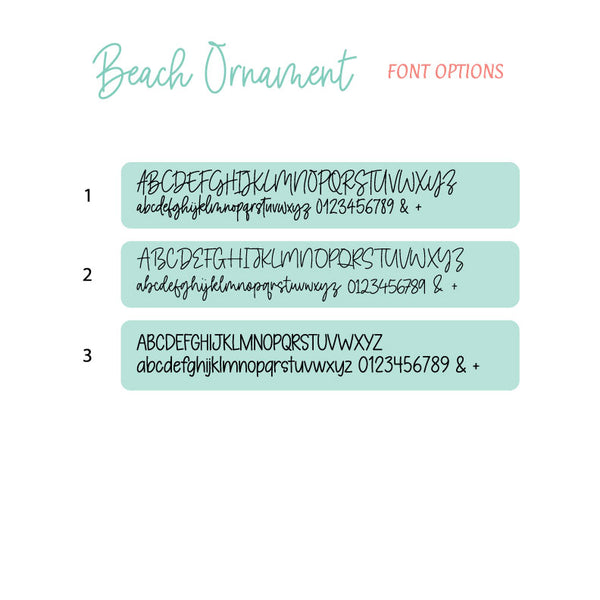 Beach Ornament FONT OPTIONS
1
ABCDEFGHIJKLMNOPQRSTUVWXYZ
abcdefghijklmnopqrstuvwxyz 0123456789 & +
2
ABCDEFGHIJKLMNOPQRSTUVWXYZ
abcdefghijklmnopqrstuvwxyz 0123456789 & +
3
ABCDEFGHIJKLMNOPQRSTUVWXYZ
abcdefghijklmnopqrstuvwxyz 0123456789 & +